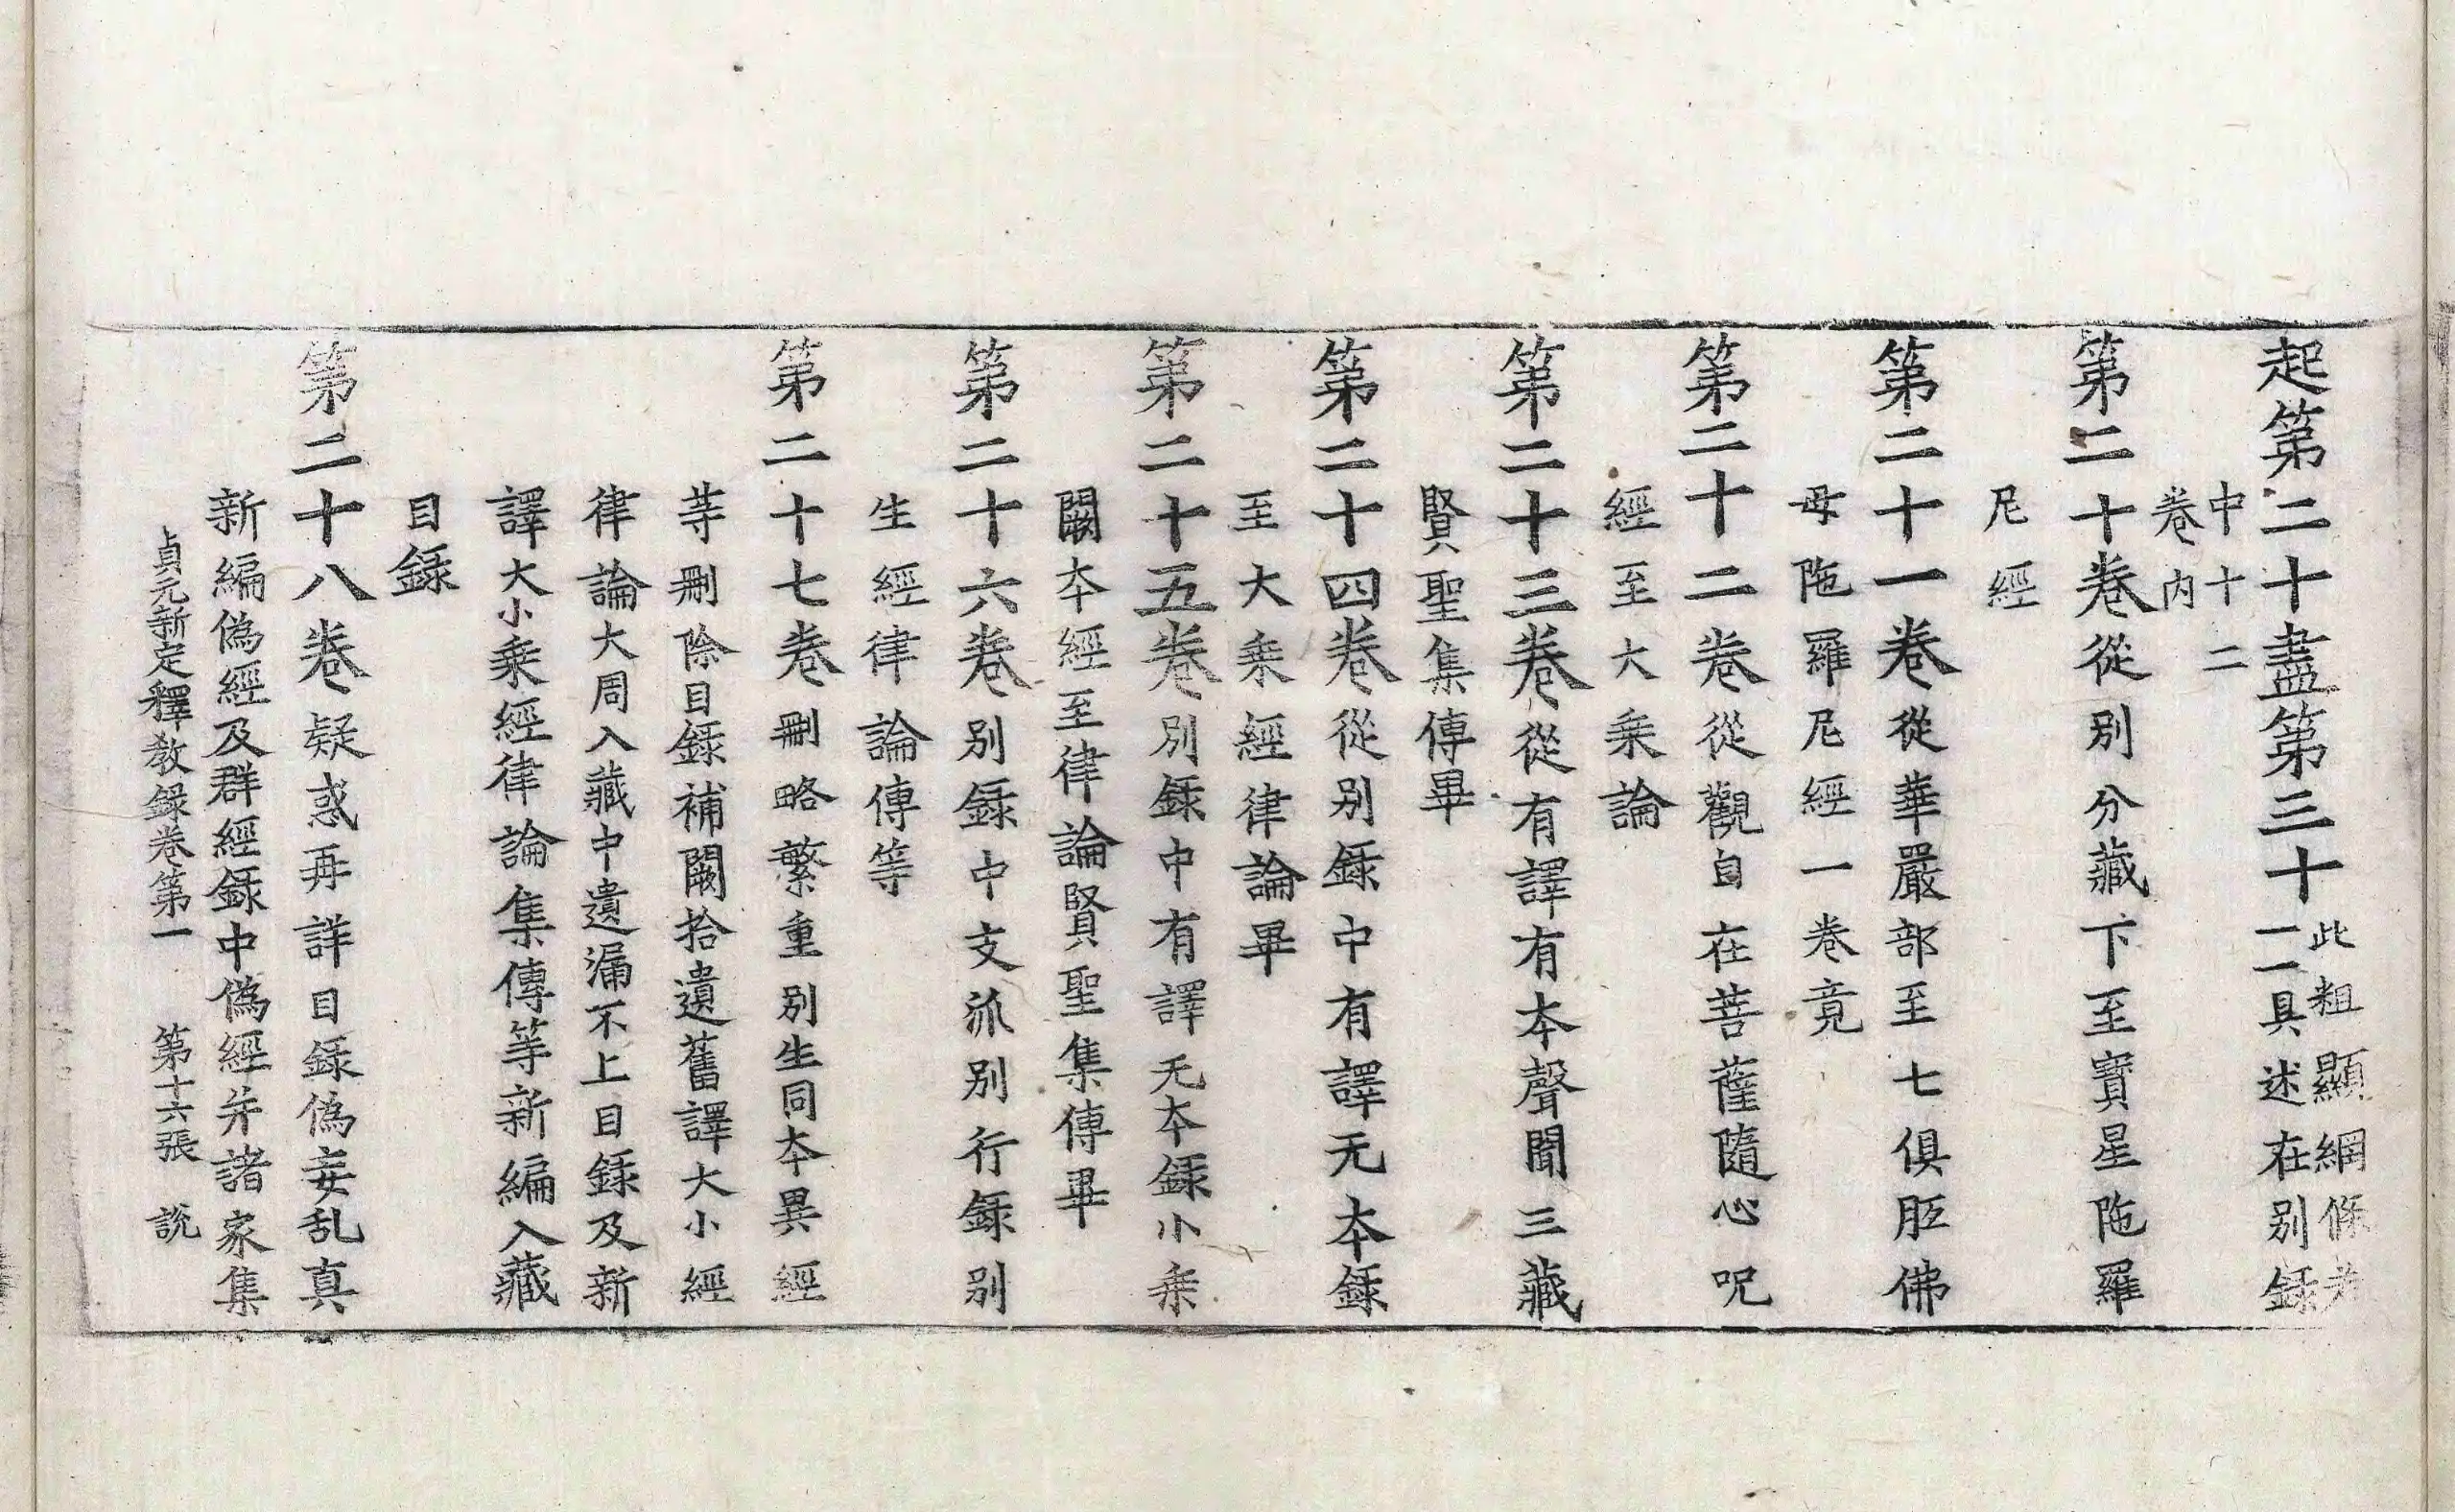 起第二十盡第三十此粗顯綱條若一一具述在別錄
中十二
卷內
第二十卷從別分藏下至寶星陁羅
尼經
第二十一卷從華嚴部至七俱胝佛
母陁羅尼經一卷竟
第二十二卷從觀自在菩薩隨心呪
經至大乘論
第二十三卷從有譯有本聲聞三藏
賢聖集傳畢
第二十四卷從別錄中有譯无本錄
至大乘經律論畢
第二十五卷別錄中有譯无本錄小乘
闕本經至律論賢聖集傳畢
第二十六卷別錄中支派別行錄別
生經律論傳等
第二十七卷刪略繁重別生同本異經
等刪除目錄補闕拾遺舊譯大小經
律論大周入藏中遺漏不上目錄及新
譯大小乘經律論集傳等新編入藏
目錄
第二十八卷疑惑再詳目錄偽妄乱真
新編偽經及群經錄中偽經并諸家集
貞元新定釋教錄卷第一 第十六張 說